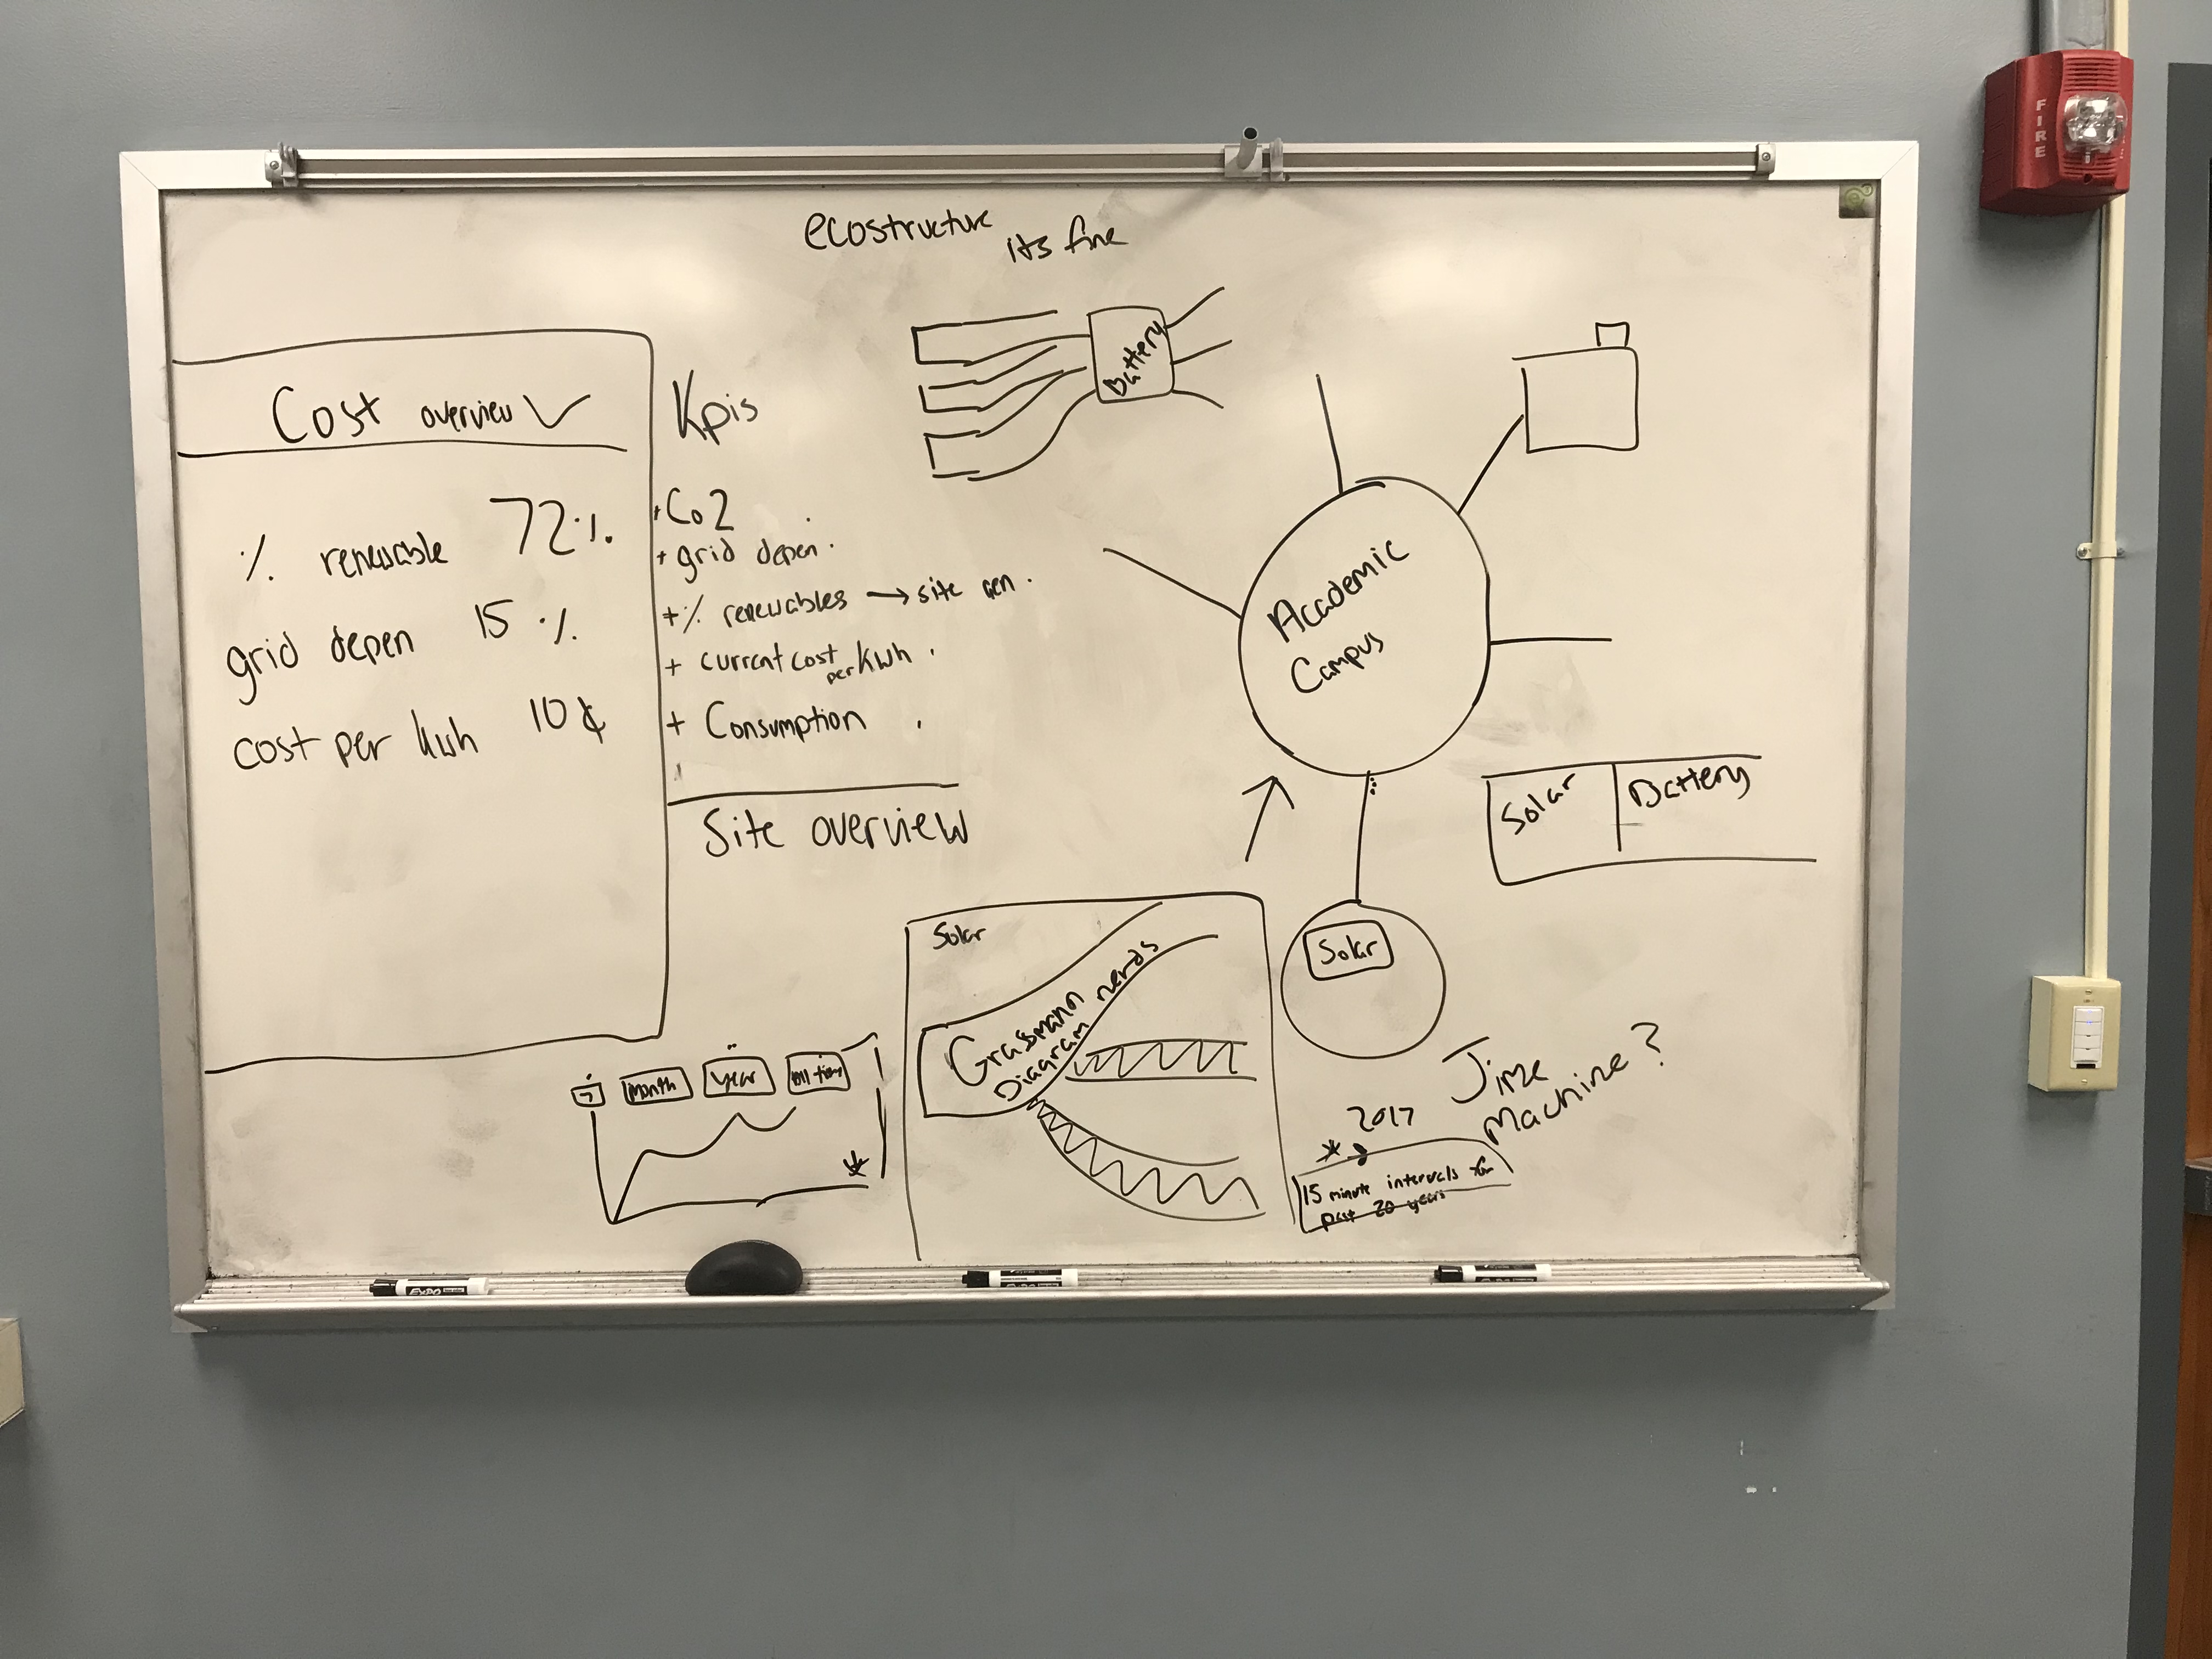 ecostructure
its fine
Cost overview
% renewable 72%
grid depen 15 %
cost per kwh 10¢
Kpis
+ Co2
+ grid depen.
+ % renewables → site gen.
+ current cost per kwh
+ Consumption
Site overview
Battery
Academic
Campus
Solar
Battery
Solar
7
month
year
all time
Solar
Grassmann nerds
Diagram
Time
Machine?
2017
15 minute intervals for
past 20 years
EXPO
FIRE